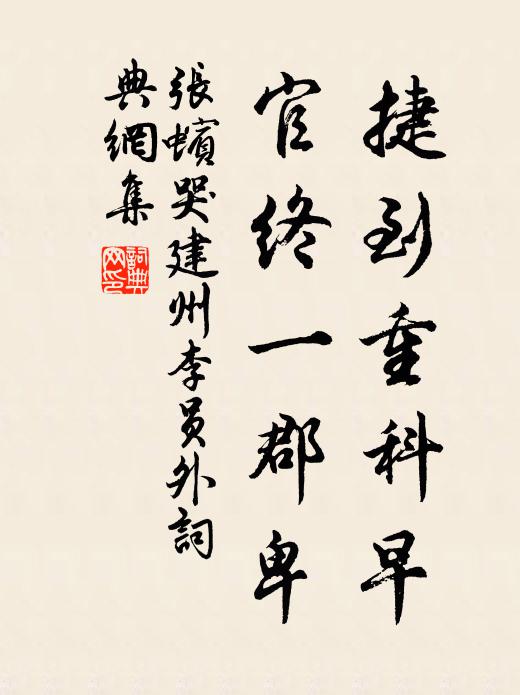 捷到重科早
官终一郡卑
張蠙哭建州李員外詞
典網集
詞典
网印